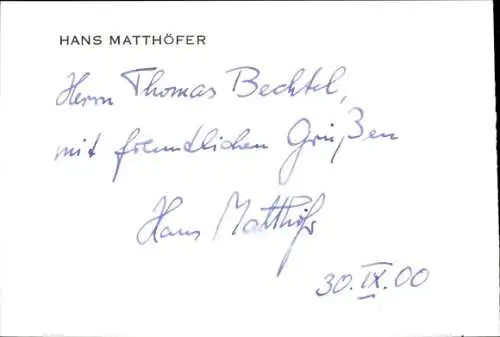 HANS MATTHÖFER
Herrn Thomas Bechtel,
mit freundlichen Grüßen
Hans Matthöfer
30. IX. 00